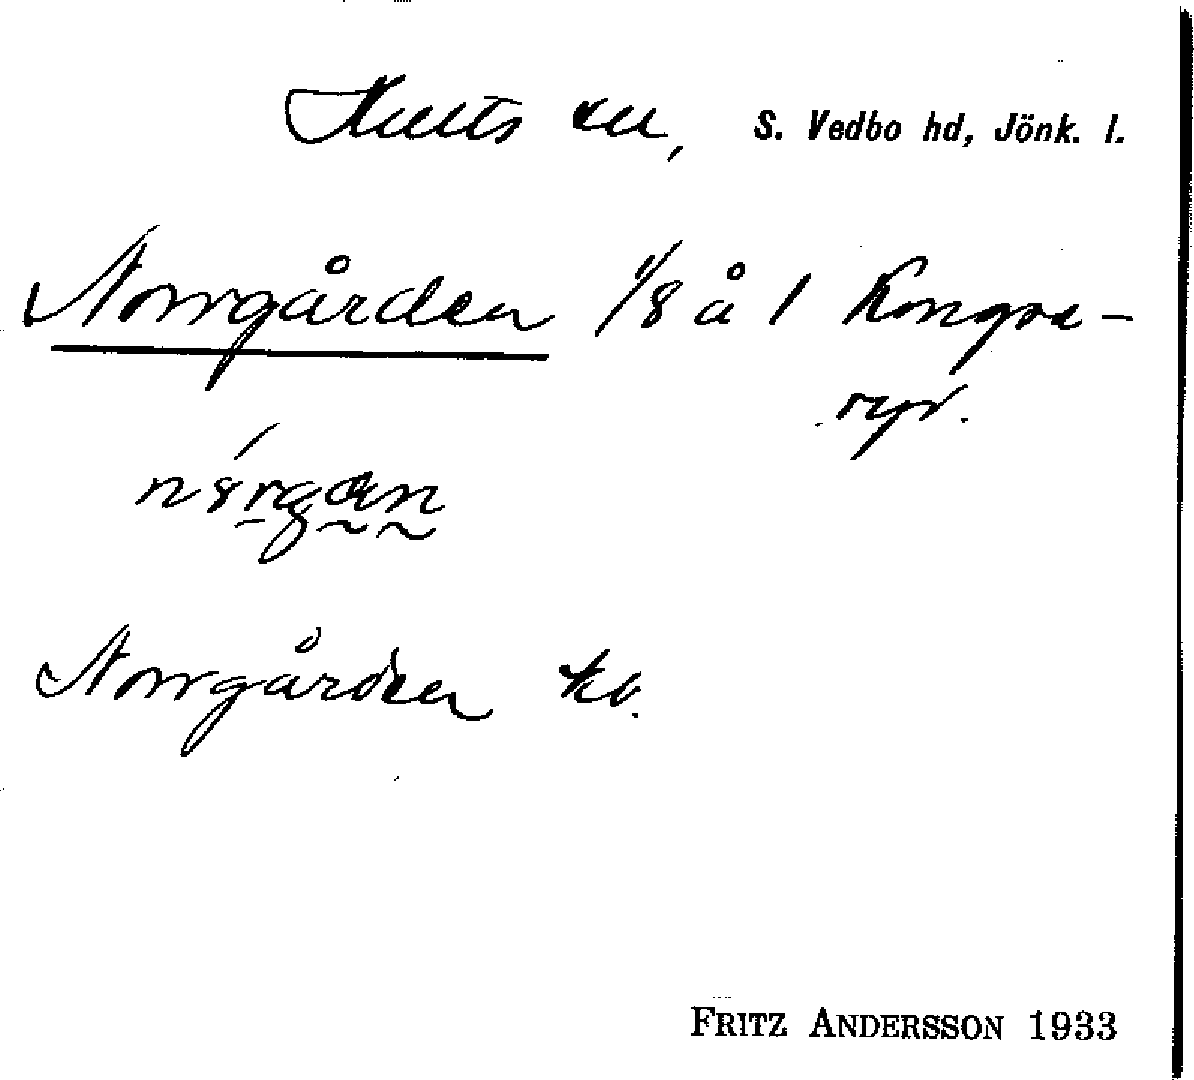 Hults sn, S. Vedbo hd, Jönk. l.
Norrgården 1/8 å 1 Kongse-
ryd.
Norrgården kb.
FRITZ ANDERSSON 1933